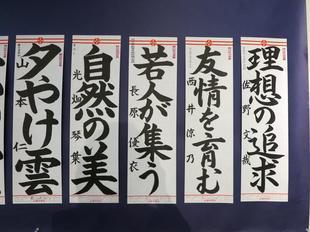 理想の追求
佐野文哉
友情を育む
西井涼乃
若人が集う
長原優衣
自然の美
光畑琴葉
夕やけ雲
山本仁